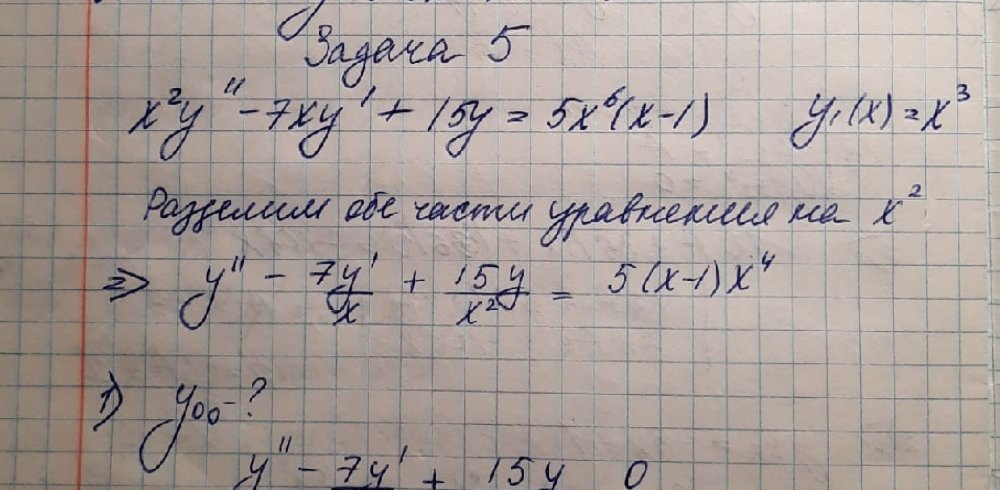 Задача 5
x²y'' - 7xy' + 15y = 5x⁶(x-1) y₁(x) = x³
Разделим обе части уравнения на x²
=> y'' - 7y'/x + 15y/x² = 5(x-1)x⁴
1) y₀₀ - ?
y'' - 7y' + 15y 0